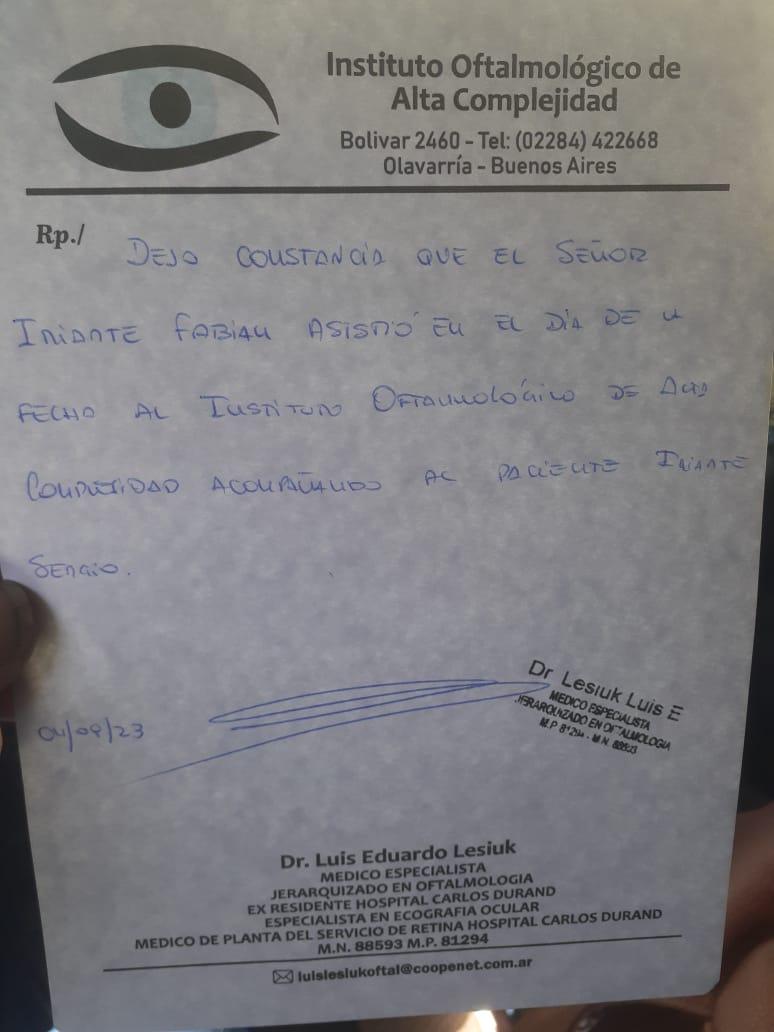 Instituto Oftalmológico de
Alta Complejidad
Bolivar 2460 - Tel: (02284) 422668
Olavarría - Buenos Aires
Rp./
DEJO CONSTANCIA QUE EL SEÑOR
IRIARTE FABIAN ASISTIÓ EN EL DÍA DE LA
FECHA AL INSTITUTO OFTALMOLÓGICO DE ALTA
COMPLEJIDAD ACOMPAÑANDO AL PACIENTE IRIARTE
SERGIO.
Dr Lesiuk Luis E
MEDICO ESPECIALISTA
JERARQUIZADO EN OFTALMOLOGIA
M.P 81294 - M.N. 88593
04/09/23
Dr. Luis Eduardo Lesiuk
MEDICO ESPECIALISTA
JERARQUIZADO EN OFTALMOLOGIA
EX RESIDENTE HOSPITAL CARLOS DURAND
ESPECIALISTA EN ECOGRAFIA OCULAR
MEDICO DE PLANTA DEL SERVICIO DE RETINA HOSPITAL CARLOS DURAND
M.N. 88593 M.P. 81294
luislesiukoftal@coopenet.com.ar